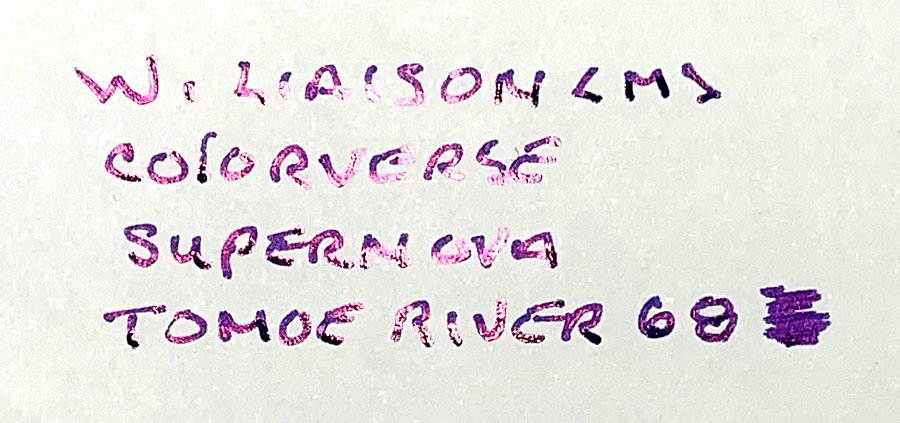 W. LIAISON <M>
COlORVERSE
SUPERNOVA
TOMOE RIVER 68